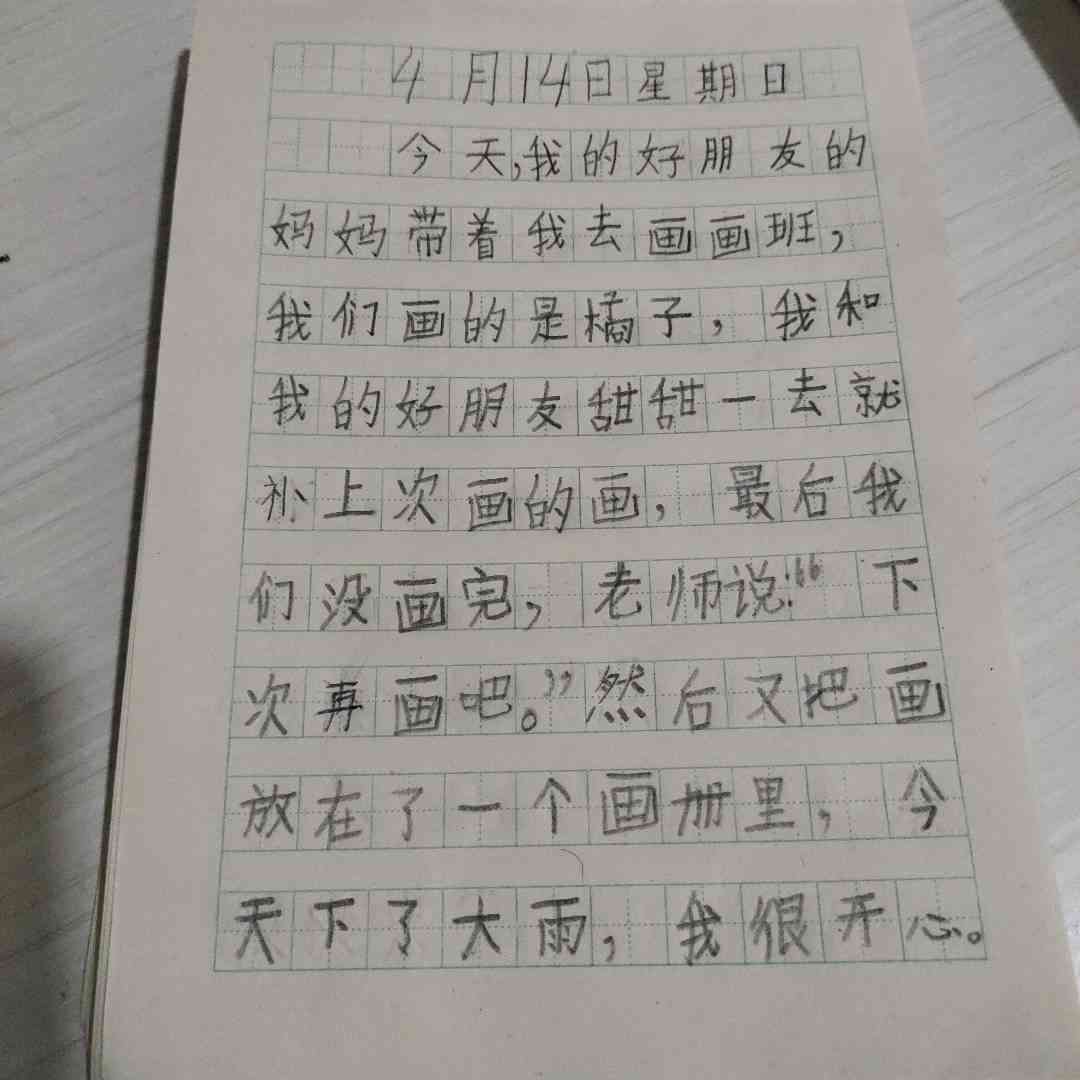 4月14日星期日
今天,我的好朋友的
妈妈带着我去画画班,
我们画的是橘子,我和
我的好朋友甜甜一去就
补上次画的画,最后我
们没画完,老师说:“下
次再画吧。”然后又把画
放在了一个画册里,今
天下了大雨,我很开心。